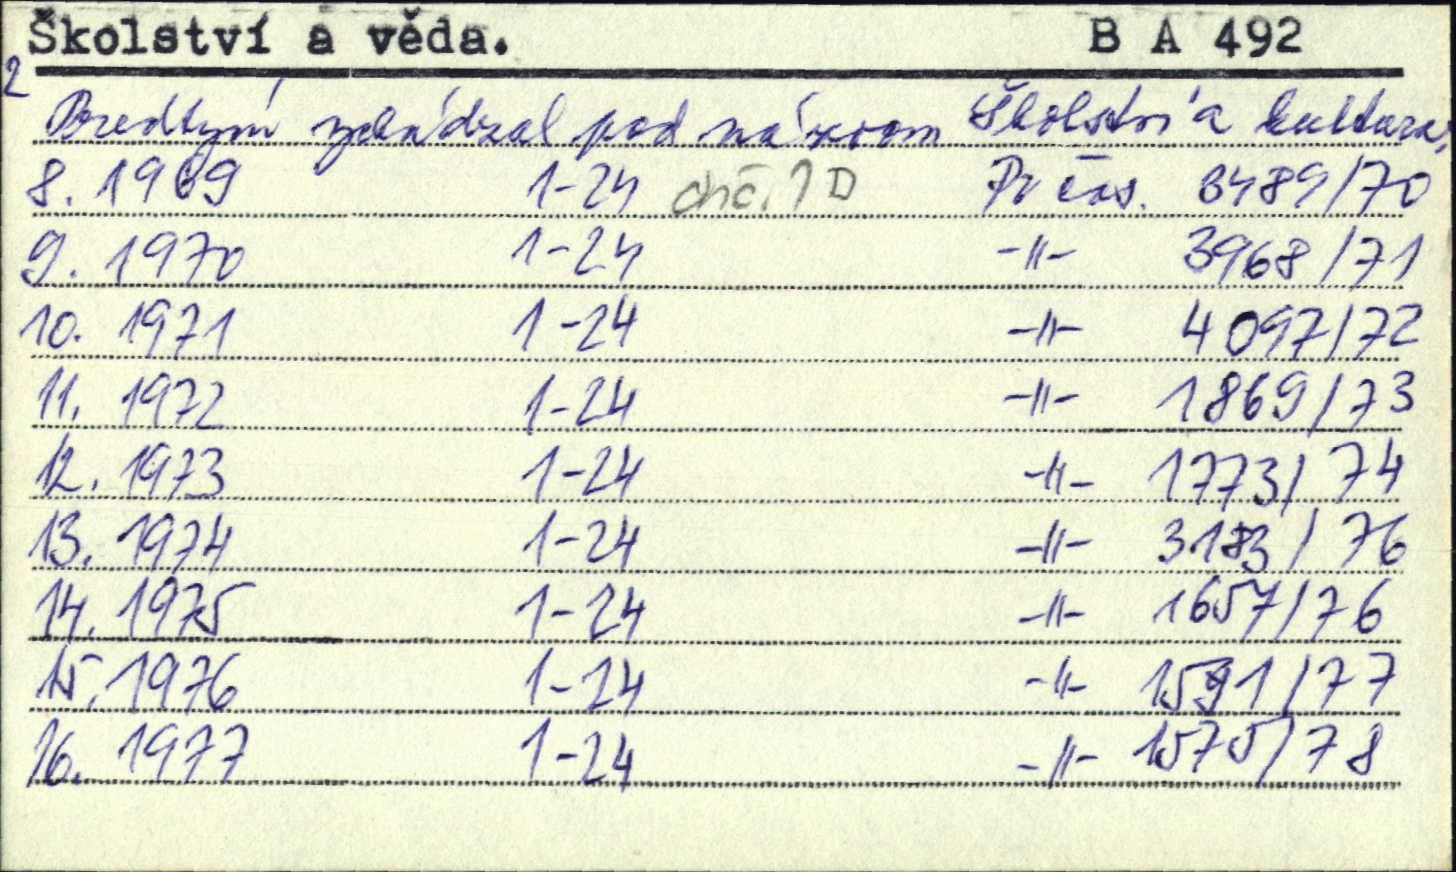 Školství a věda. B A 492
2
Predtým vychádzal pod názvom Školství a kultura,
8. 1969 1-24 chč. 1D Pr čas. 3489/70
9. 1970 1-24 -"- 3968/71
10. 1971 1-24 -"- 4097/72
11. 1972 1-24 -"- 1869/73
12. 1973 1-24 -"- 1773/74
13. 1974 1-24 -"- 3183/76
14. 1975 1-24 -"- 1657/76
15. 1976 1-24 -"- 1591/77
16. 1977 1-24 -"- 1575/78